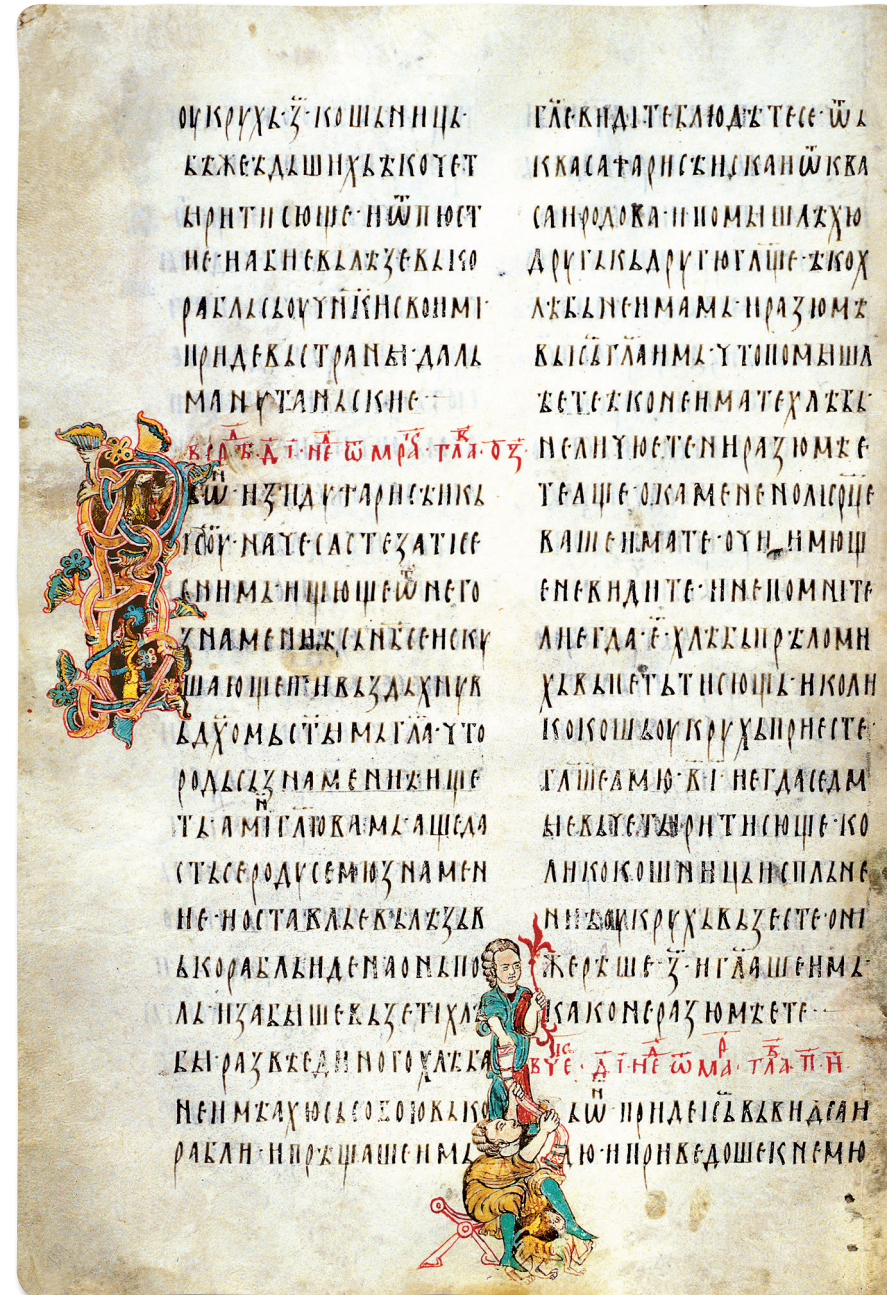 оукрухь·з҃·кошьниць·
бѣжеѣдьшихьѣкочет
ꙑритисюще·иѿпюст
ие·иабиевьлѣзевько
рабльсьоучн҃кисвоими·
придевьстранꙑ·даль
манѹтаньские
вер·д҃·і·не҃ ѿ мр҃а·гла҃·оз҃·
вѿ·изидуфарисѣики
исоу·начесастезатисе
снимь·ищющеѿнего
знамениѣсьнбсенску
шающеи·ивьздьхнув
ьдх҃омьст҃ꙑмьгл҃а·что
родьсьзнамениѣище
ть·амигл҃ювамь·ащеда
стьсеродусемюзнамен
ие·иоставльевьлѣзьв
ькорабльиденаоньпо
ль·изабꙑшевьзетихлѣ
бꙑ·развѣединогохлѣба
неимѣахюсьсобоювько
рабли·ипрѣщашеимь
гл҃евидітеблюдѣтесе·ѿь
квасафарисѣискаиѿква
саиродова·ипомꙑшлѣхю
другькьдругюгл҃ще·ѣкох
лѣбьнеимамь·иразюмѣ
вьісъгл҃аимь·чтопомꙑшл
ѣетеѣконеиматехлѣбь
неличюетениразюмѣе
теащеокамененолисрⷣце
вашеимате·очи имющ
еневидите·инепомните
лиегда·е҃·хлѣбьпрѣломи
хьвьпетьтисющь·иколи
кокошьоукрухьприесте·
гл҃шеамю·в҃·і· иегдаседм
ꙑевьчетꙑритисюще·ко
ликокошницьиспльне
ниѣоукрухьвьзесте·они
жерѣше·з҃·игл҃ашеимь·
каконеразюмѣете
вче·д҃·і·не҃ ѿ мар·гла҃·п҃·и҃·
ьѿ придеісьвьвидсаи
ю·иприведошекнемю